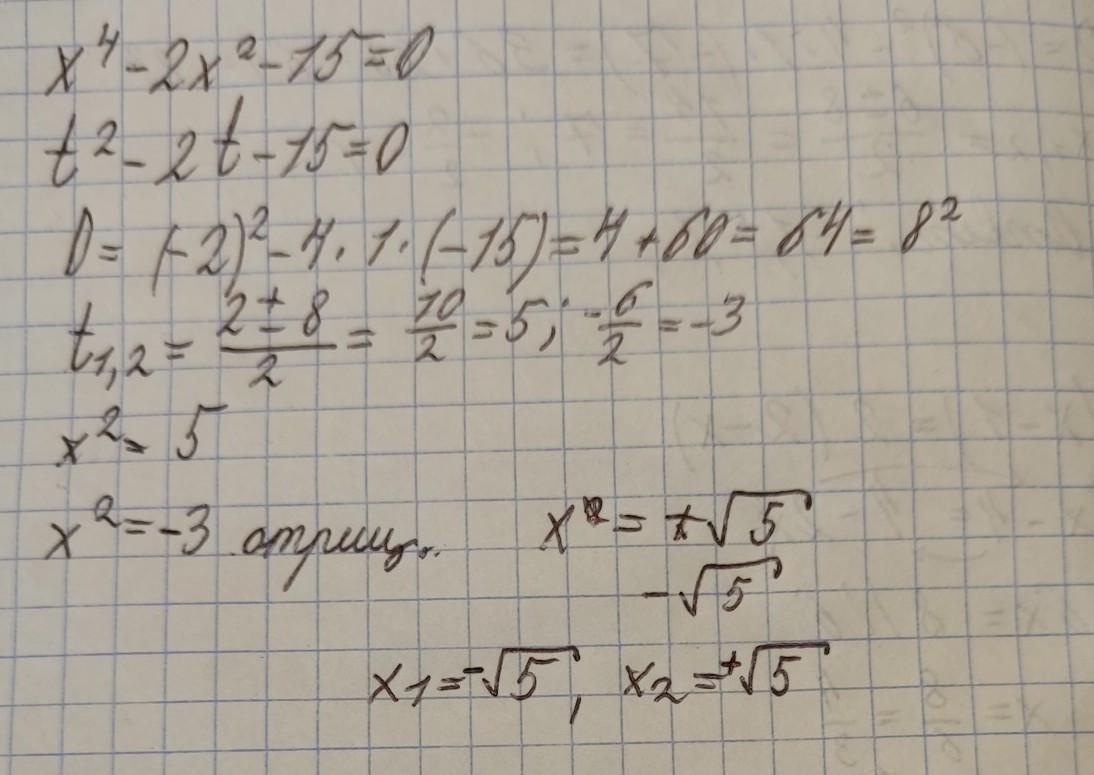 x⁴ - 2x² - 15 = 0
t² - 2t - 15 = 0
D = (-2)² - 4 · 1 · (-15) = 4 + 60 = 64 = 8²
t₁,₂ = (2 ± 8)/2 = 10/2 = 5; -6/2 = -3
x² = 5
x² = -3 отриц. x = ±√5
-√5
x₁ = -√5, x₂ = +√5